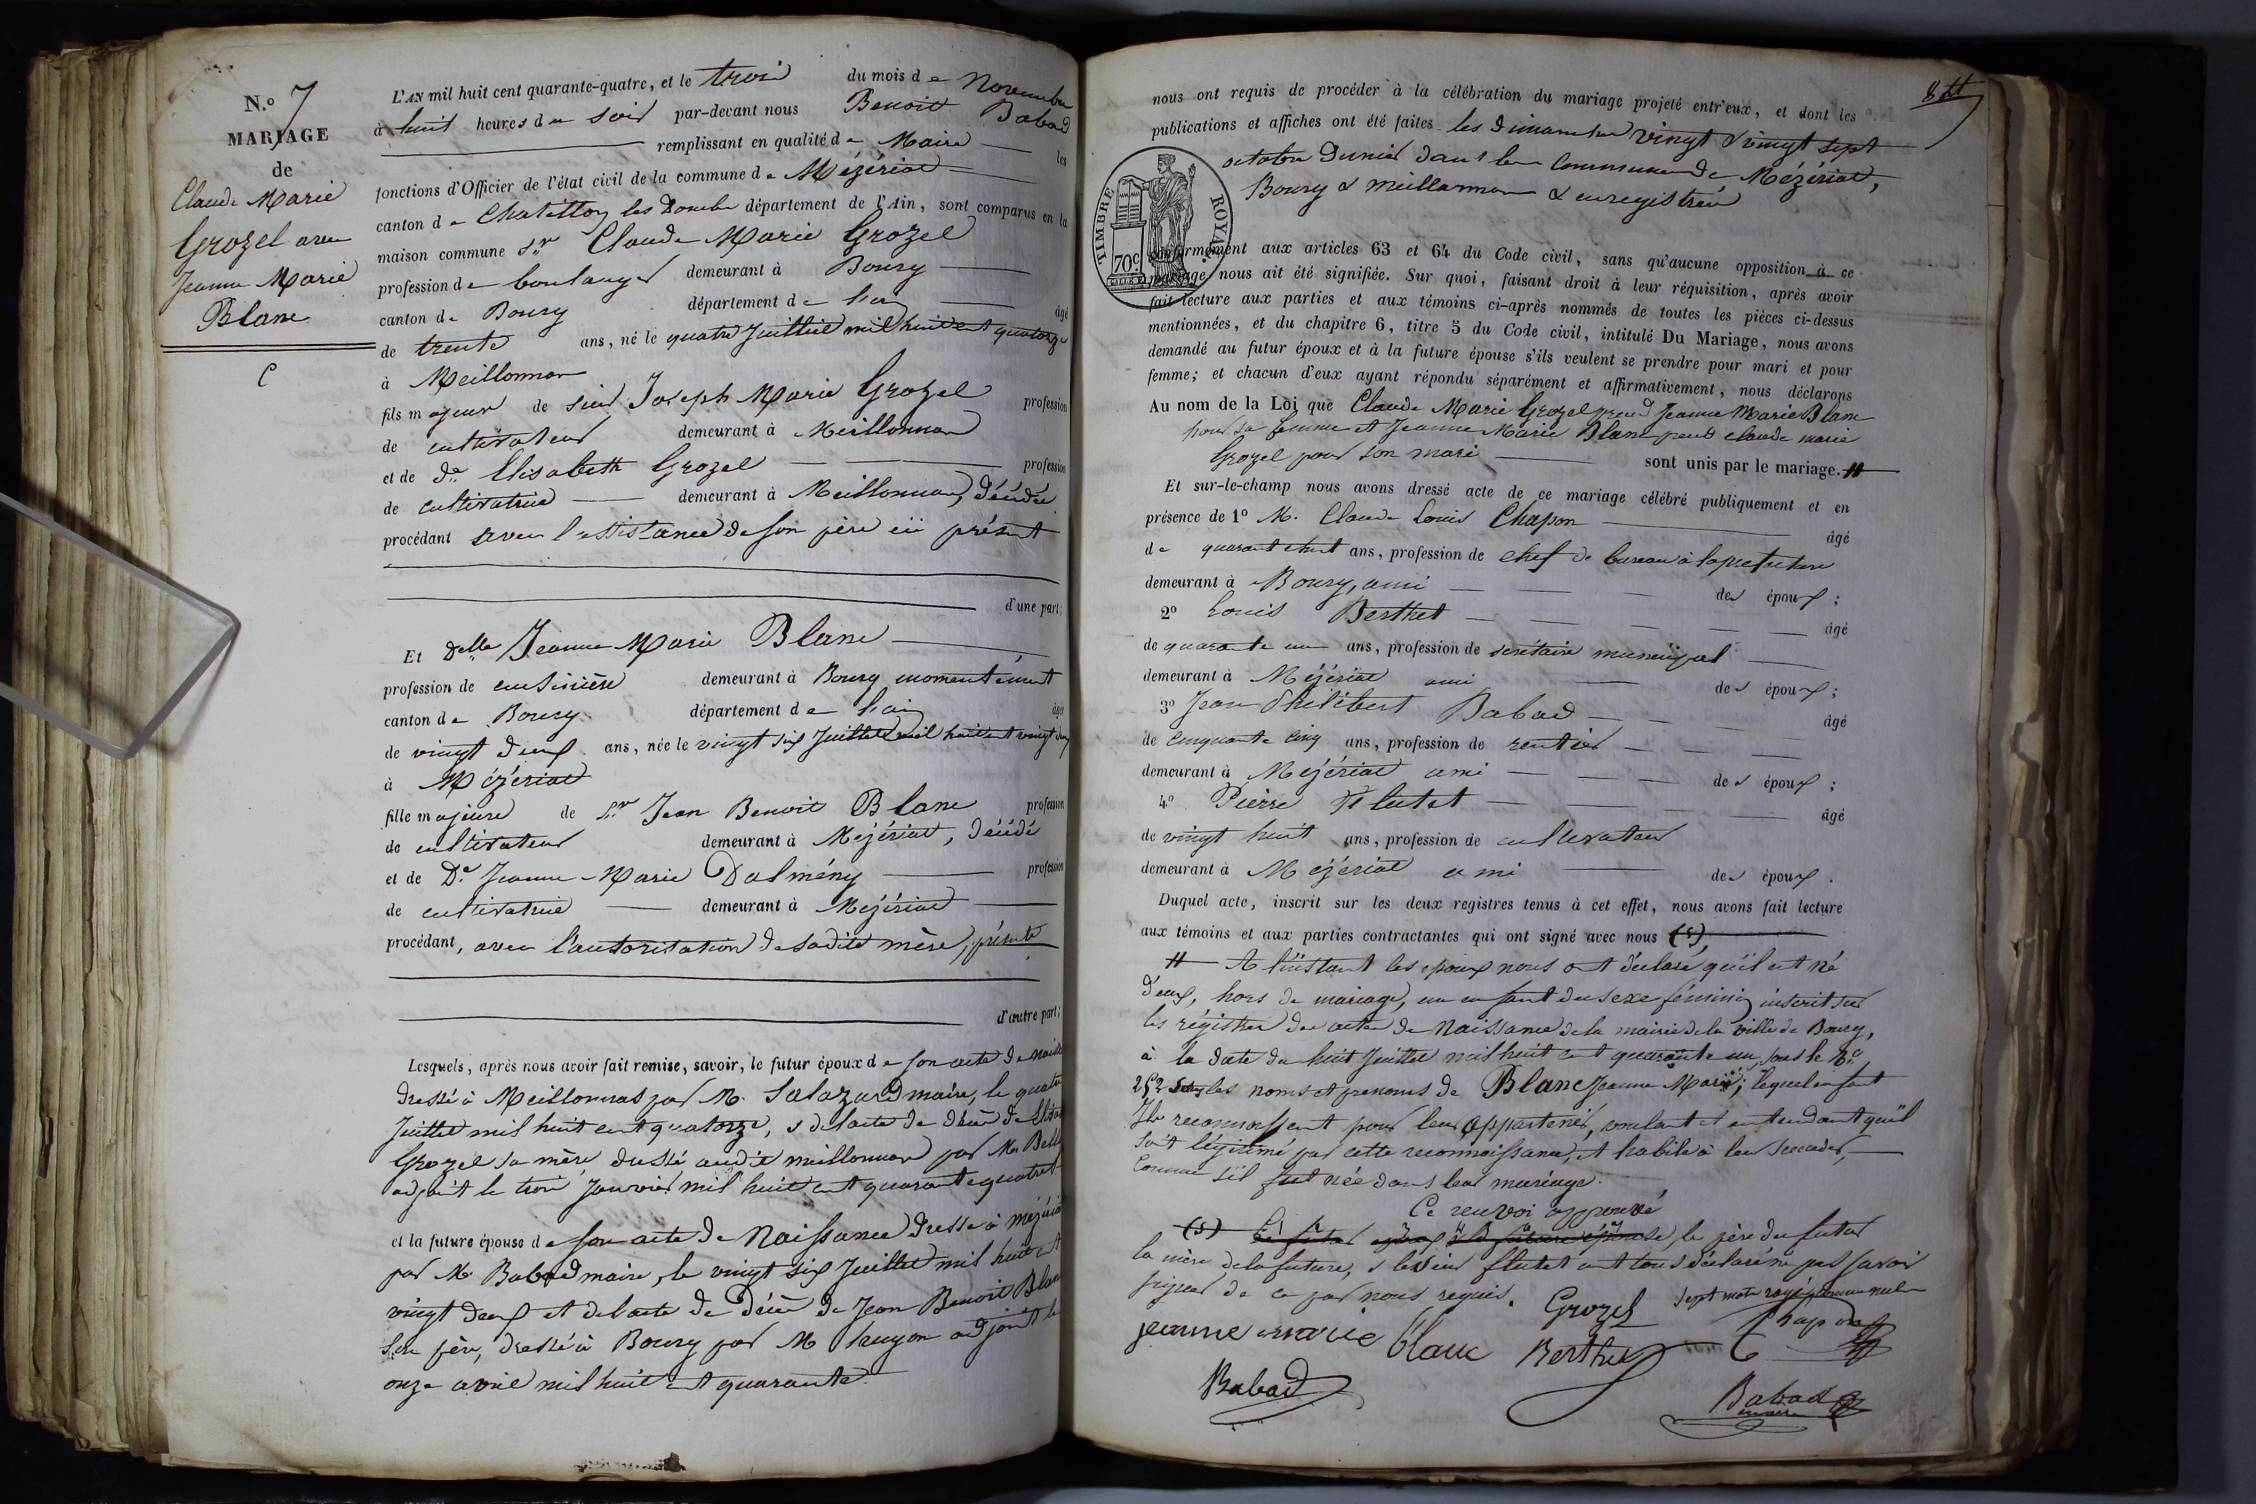 N.º 7
MARIAGE
de
Claude Marie
Grozel avec
Jeanne Marie
Blanc
C
L'AN mil huit cent quarante-quatre, et le trois du mois de Novembre
à huit heures du soir par-devant nous Benoit Babad
remplissant en qualité de Maire les
fonctions d'Officier de l'état civil de la commune de Mézériat
canton de Chatillon les Dombe département de l'Ain, sont comparus en la
maison commune Sr Claude Marie Grozel
profession de boulanger demeurant à Bourg
canton de Bourg département de l'ain âgé
de trente ans, né le quatre Juillet mil huit cent quatorze
à Meillonnas
fils majeur de sieur Joseph Marie Grozel profession
de cultivateur demeurant à Meillonnas
et de De Elisabeth Grozel profession
de cultivatrice demeurant à Meillonnas, décédée
procédant avec l'assistance de son père ici présent
d'une part;
Et Delle Jeanne Marie Blanc
profession de cuisinière demeurant à Bourg momentément
canton de Bourg département de l'ain âgée
de vingt deux ans, née le vingt six Juillet mil huit cent vingt deux
à Mézériat
fille majeure de Sr Jean Benoit Blanc profession
de cultivateur demeurant à Mézériat, décédé
et de De Jeanne Marie Dalmény profession
de cultivatrice demeurant à Mézériat
procédant, avec l'autorisation de sadite mère, présente
d'autre part;
Lesquels, après nous avoir fait remise, savoir, le futur époux de son acte de naiss
dressé à Meillonnas par M. Salazard maire, le quatre
Juillet mil huit cent quatorze, & de l'acte de décès de Elisa
Grozel sa mère, dressé audit meillonnas par Mr
adjoint le trois Janvier mil huit cent quarante quatre
et la future épouse de son acte de Naissance dressé à mézériat
par M. Babad maire, le vingt six Juillet mil huit cent
vingt deux et de l'acte de Décès de Jean Benoit Blanc
son père, dressé à Bourg par M adjoint le
onze avril mil huit cent quarante.
nous ont requis de procéder à la célébration du mariage projeté entr'eux, et dont les
publications et affiches ont été faites les dimanches vingt & vingt sept
octobre dernier dans les communes de Mézériat,
Bourg & meillonnas & enregistrées
TIMBRE ROYAL
70c
conformément aux articles 63 et 64 du Code civil, sans qu'aucune opposition à ce
mariage nous ait été signifiée. Sur quoi, faisant droit à leur réquisition, après avoir
fait lecture aux parties et aux témoins ci-après nommés de toutes les pièces ci-dessus
mentionnées, et du chapitre 6, titre 5 du Code civil, intitulé Du Mariage, nous avons
demandé au futur époux et à la future épouse s'ils veulent se prendre pour mari et pour
femme; et chacun d'eux ayant répondu séparément et affirmativement, nous déclarons
Au nom de la Loi que Claude Marie Grozel prend Jeanne Marie Blanc
pour sa femme et Jeanne Marie Blanc prend claude marie
Grozel pour son mari sont unis par le mariage. #
Et sur-le-champ nous avons dressé acte de ce mariage célébré publiquement et en
présence de 1º M. Claude Louis Chapon âgé
de quarante huit ans, profession de chef de bureau à la préfecture
demeurant à Bourg, ami des époux;
2º Louis Berthet âgé
de quarante un ans, profession de secrétaire municipal
demeurant à Mézériat ami des époux;
3º Jean Philibert Babad âgé
de cinquante cinq ans, profession de rentier
demeurant à Mézériat ami des époux;
4º Pierre Flutet âgé
de vingt huit ans, profession de cultivateur
demeurant à Mézériat ami des époux.
Duquel acte, inscrit sur les deux registres tenus à cet effet, nous avons fait lecture
aux témoins et aux parties contractantes qui ont signé avec nous (s),
# A l'instant les époux nous ont déclaré qu'il est né
d'eux, hors de mariage, un enfant du sexe féminin inscrit sur
les régistres des actes de Naissance de la mairie de la ville de Bourg,
à la date du huit Juillet mil huit cent quarante un, sous le No
252 les noms et prenoms de Blanc Jeanne Marie; lequel enfant
Ils reconnoissent pour leur appartenir, voulant et entendant qu'il
soit légitimé par cette reconnoissance, et habile à leur succéder,
comme s'il fut née dans leur mariage.
Ce renvoi approuvé
(s) Le futur époux & la future épouse, le père du futur
la mère de la future, & le sieur Flutet ont tous déclaré ne pas savoir
signer de ce par nous requis. Sept mots rayés comme nuls
Grozel Chapon
jeanne marie blanc Berthet
Babad
Babad
maire